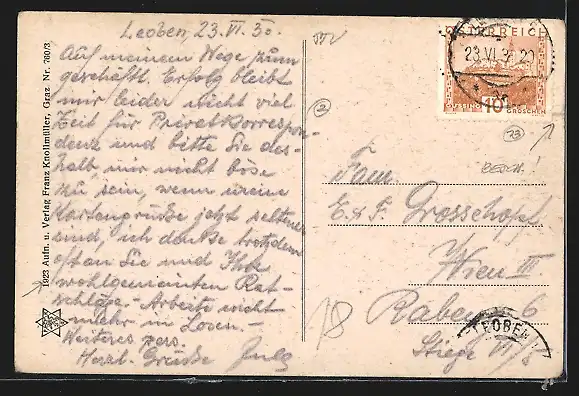 Leoben, 23. VI. 30.
Auf meinem Wege zum
geschäftl. Erfolg bleibt
mir leider nicht viel
Zeit für Privatkorrespon-
denz und bitte Sie des-
halb, mir nicht böse
zu sein, wenn meine
Kartengrüße jetzt seltener
sind, ich denke trotzdem
oft an Sie und Ihre
wohlgemeinten Rat-
schläge. - Arbeite nicht
mehr in Loben. -
Weiteres pers.
Herzl. Grüße
1923 Aufn. u. Verlag Franz Knollmüller, Graz Nr. 760/3
ÖSTERREICH
23.VI.3
10
GROSCHEN
2
23
Fam.
E. & F. Grosschopf
Wien III
6
Stiege
LEOBEN
18